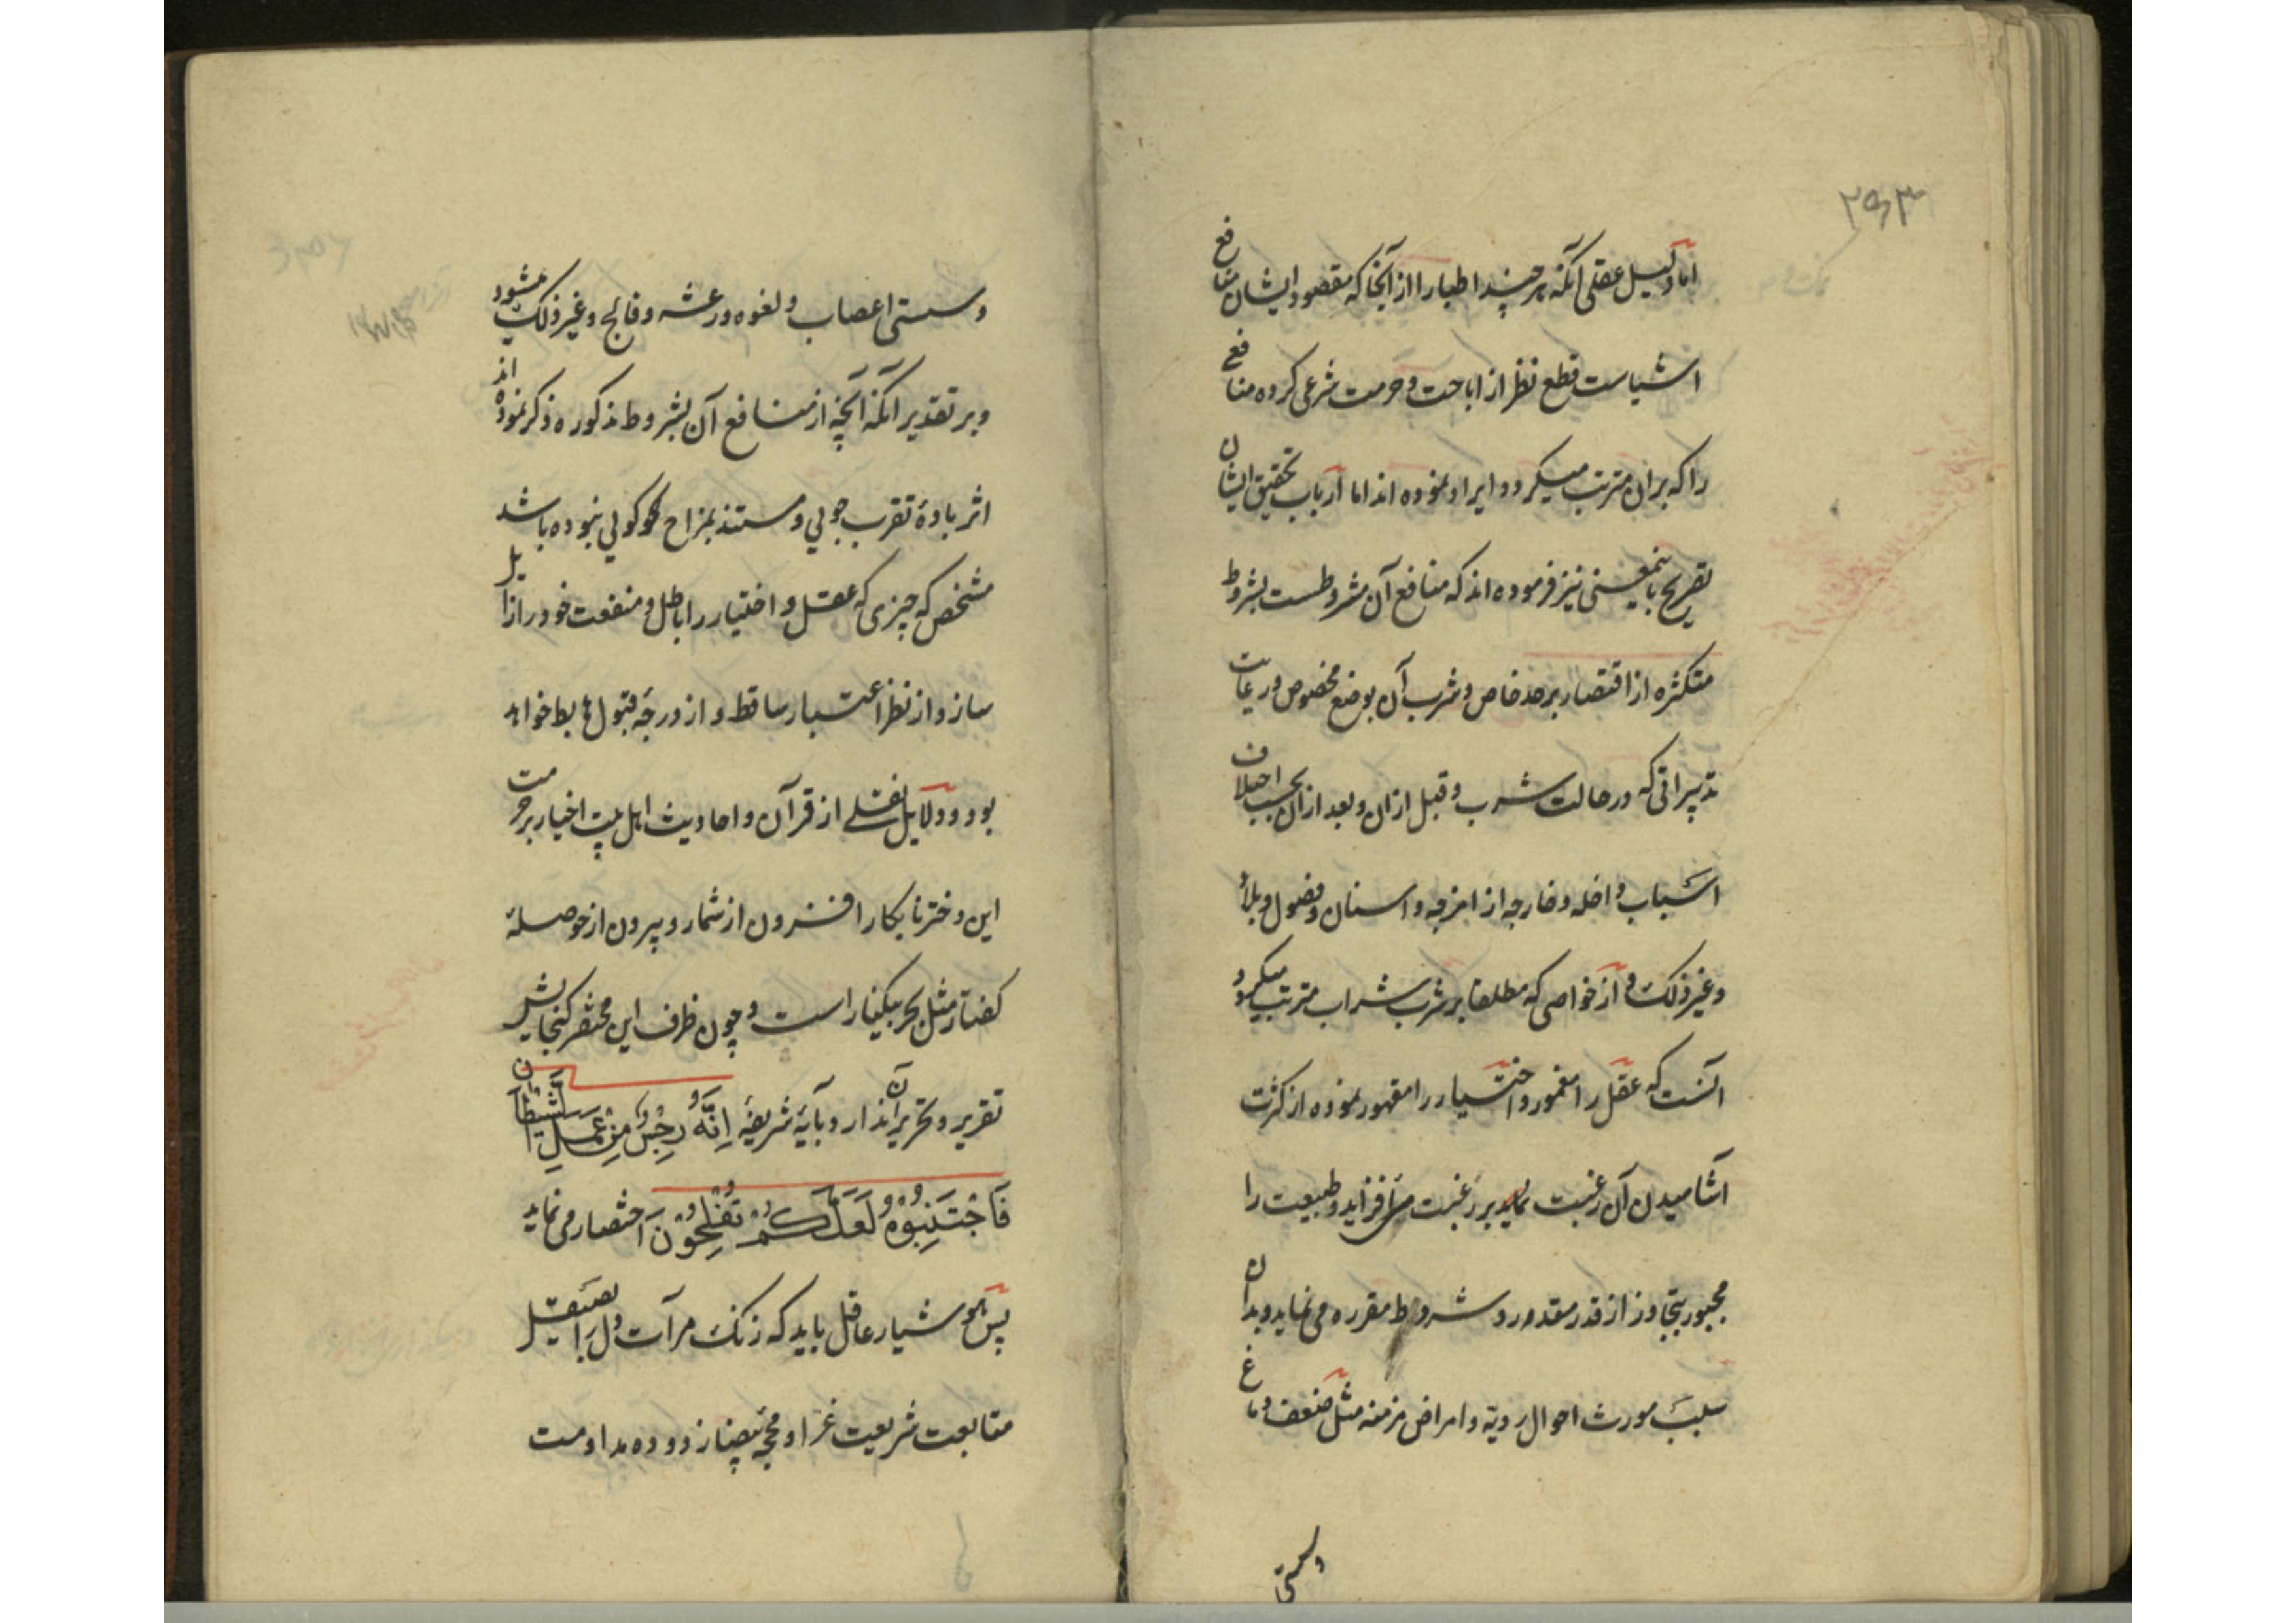 ۲۹۳
اما دلیل عقلی آنکه هر چند اطبا را از آنجا که مقصود ایشان منافع
اشیاست قطع نظر از اباحت و حرمت شرعی کرده منافع
را که بران مترتب میکردد ایراد نموده اند اما ارباب تحقیق ایشان
تصریح باینمعنی نیز فرموده اند که منافع آن مشروطست بشروط
متکثره از اقتصار بر حد خاص و شرب آن بوضع مخصوص و رعایت
تدبیراتی که در حالت شرب و قبل ازان و بعد ازان بحسب اختلاف
اسباب داخله و خارجه از امزجه و اسنان و فصول و بلاد
و غیر ذلک و از خواصی که مطلقا بر شرب شراب مترتب میکردد
آنست که عقل را مغمور و اختیار را مقهور نموده از کثرت
آشامیدن آن رغبت بر رغبت می افزاید و طبیعت را
مجبور بتجاوز از قدر مقدور و شروط مقرره می نماید و بدان
سبب مورث احوال ردیه و امراض مزمنه مثل ضعف دماغ
وسستی
وسستی اعصاب و لغوه و رعشه و فالج و غیر ذلک میشود
و بر تقدیر آنکه آنچه از منافع آن بشروط مذکوره ذکر نموده اند
اثر بادهٔ تقرب جویی و مستند بمزاح کوئی نبوده باشد
مشخص که چیزی که عقل و اختیار را باطل و منفعت خود را زایل
سازد از نظر اعتبار ساقط و از درجه قبول هابط خواهد
بود و دلایل نقلی از قرآن و احادیث اهل بیت اخیار بر حرمت
این دختر نابکار افزون از شمار و بیرون از حوصلهٔ
کفتار مثل بحر بیکنار است و چون ظرف این مختصر کنجایش
تقریر و تحریر آن ندارد بآیهٔ شریفهٔ اِنَّهُ رِجْسٌ مِنْ عَمَلِ الشَّیْطَانِ
فَاجْتَنِبُوْهُ لَعَلَّکُمْ تُفْلِحُوْنَ اختصار می نماید
پس هوشیار عاقل باید که زنک مرآت دل را بصیقل
متابعت شریعت غرا و محجه بیضا زدوده مداومت